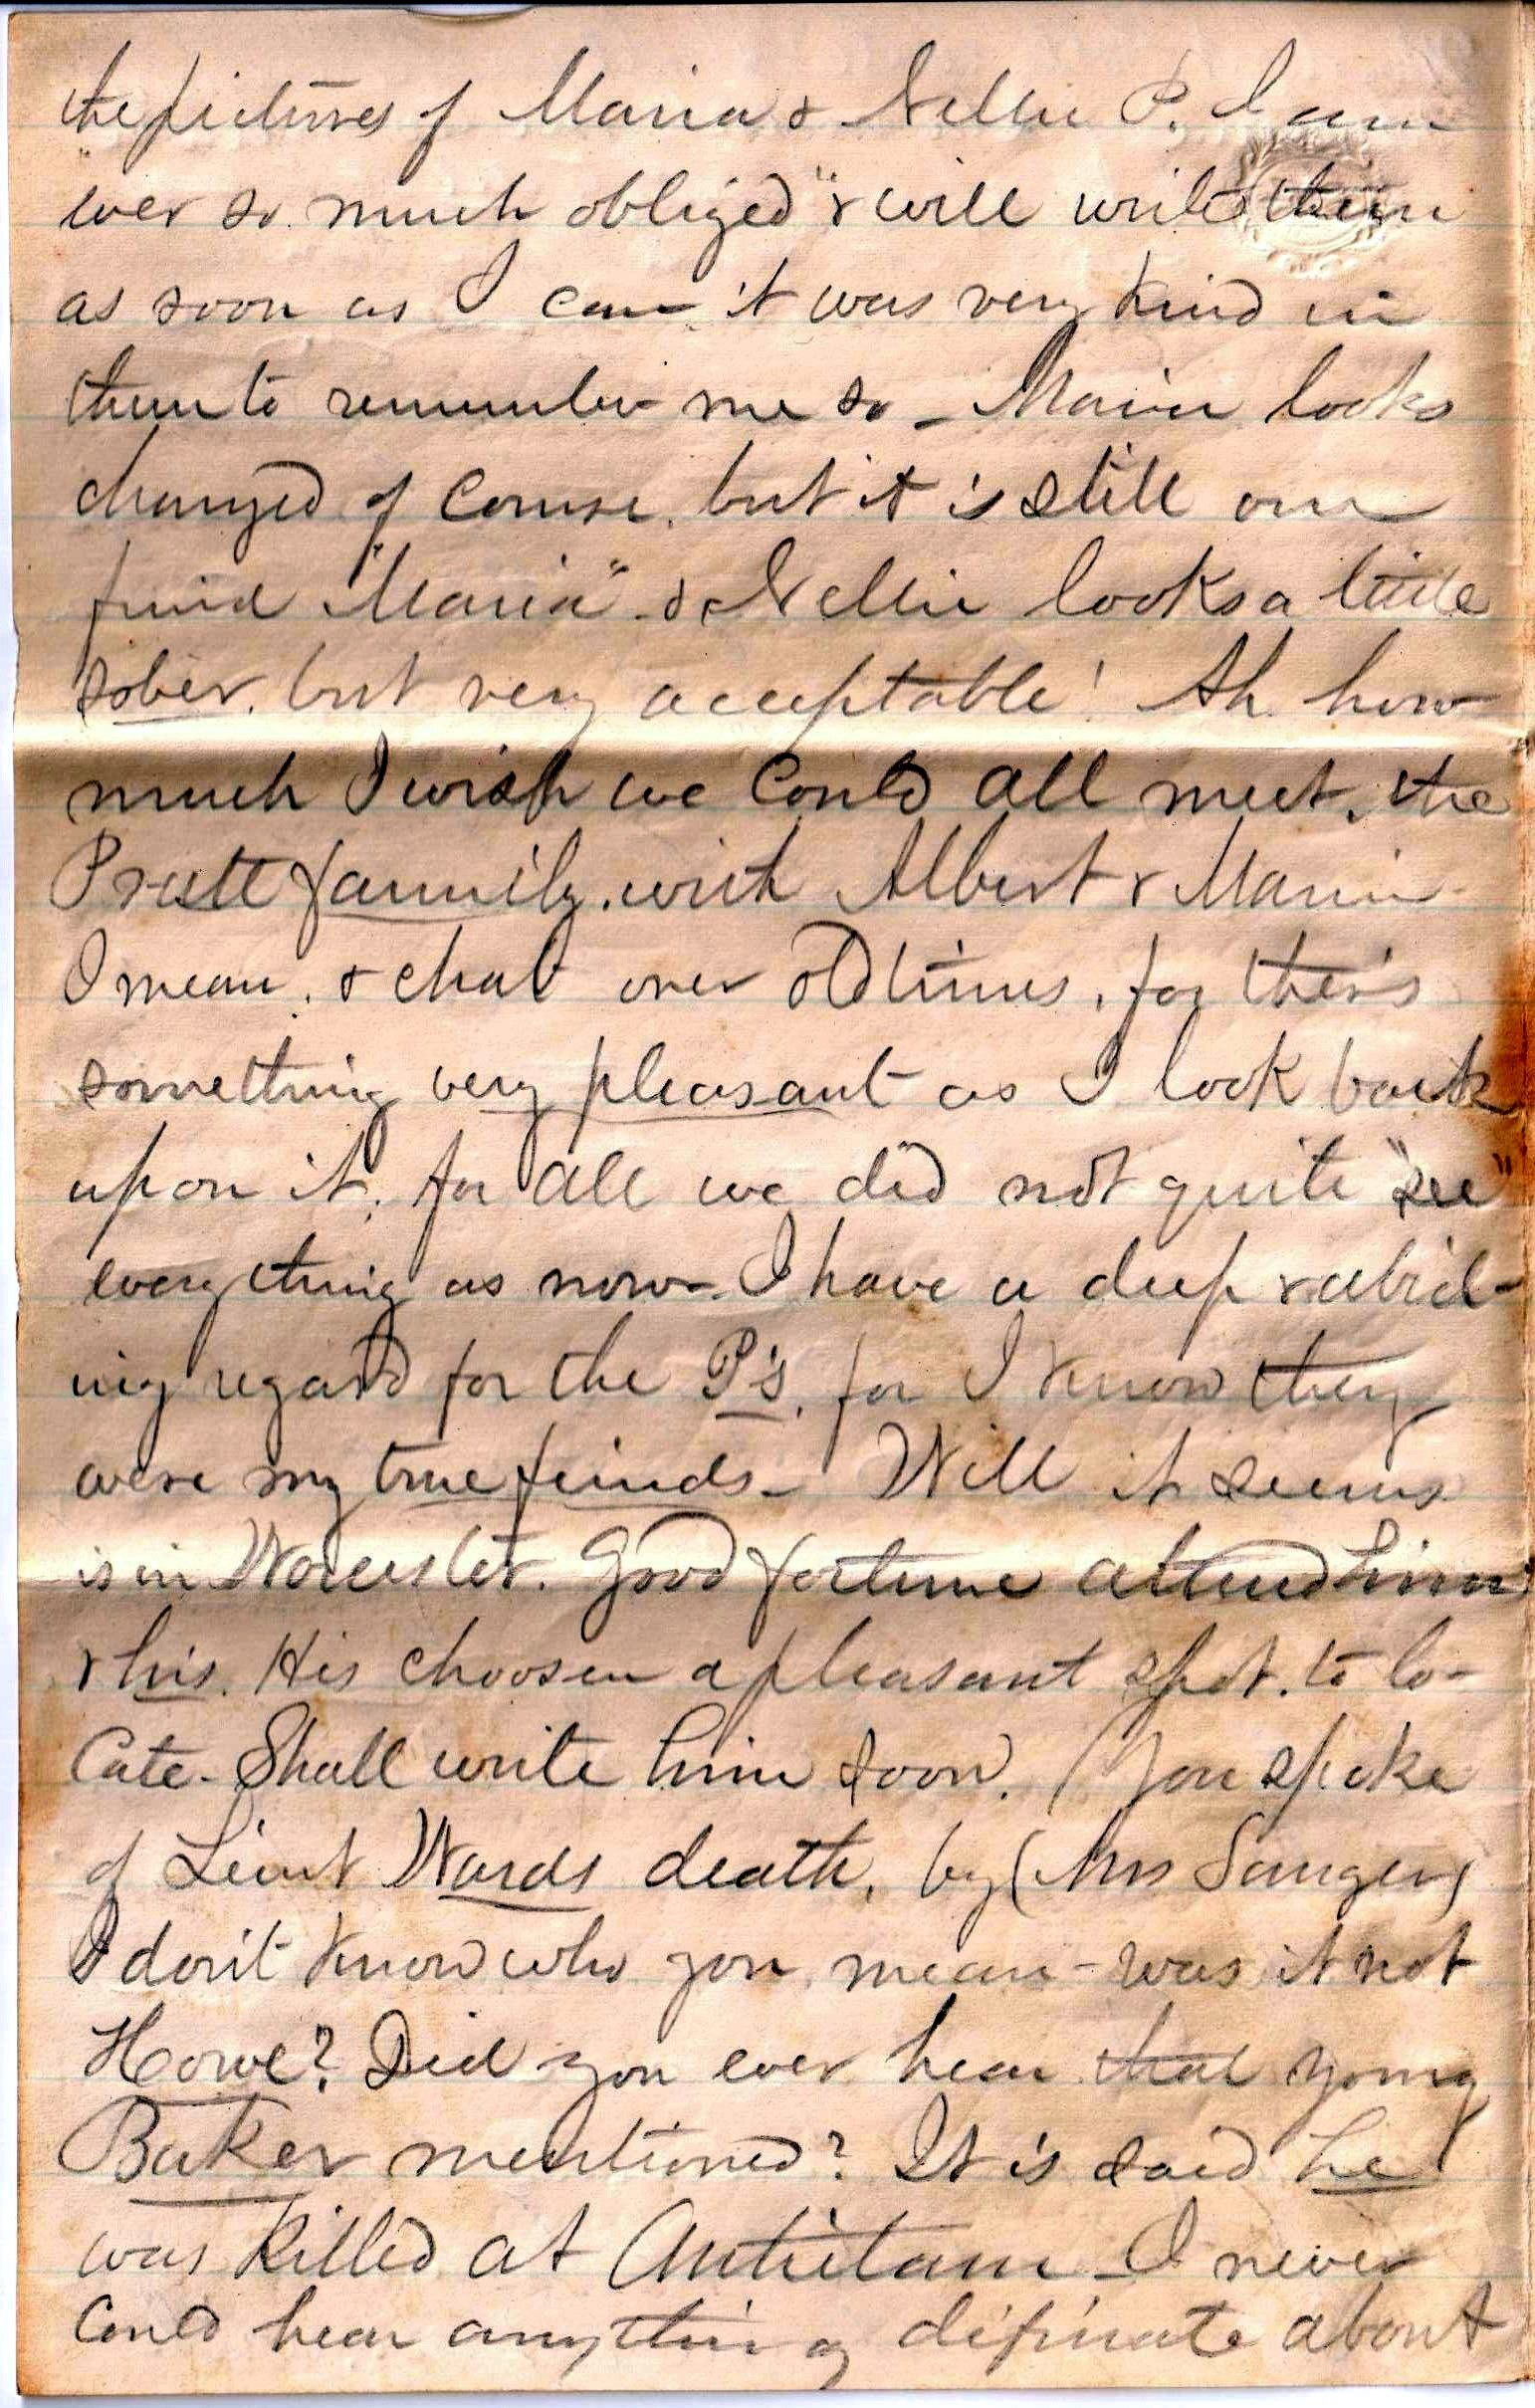 the pictures of Maria & Nellie P. I am
"ever so much obliged" & will write them
as soon as I can it was very kind in
them to remember me so - Maria looks
changed of course. but it is still our
friend "Maria" - & Nellie looks a little
sober. but very acceptable! Ah how
much I wish we could all meet. the
Pratt family. with Albert & Maria
I mean. & chat over old times. for there's
something very pleasant as I look back
upon it. for all we did not quite "see"
everything as now - I have a deep & abid-
ing regard for the P's. for I know they
were my true friends - Will it seems
is in Worcester. Good fortune attend him
& his. His choosen a pleasant spot. to lo-
cate - Shall write him soon. (You spoke
of Lieut Wards death, by (Mrs Sanger)
I don't know who you mean - was it not
Howe? Did you ever hear that young
Baker mentioned? It is said he
was killed at Antietam - I never
could hear anything difinate about